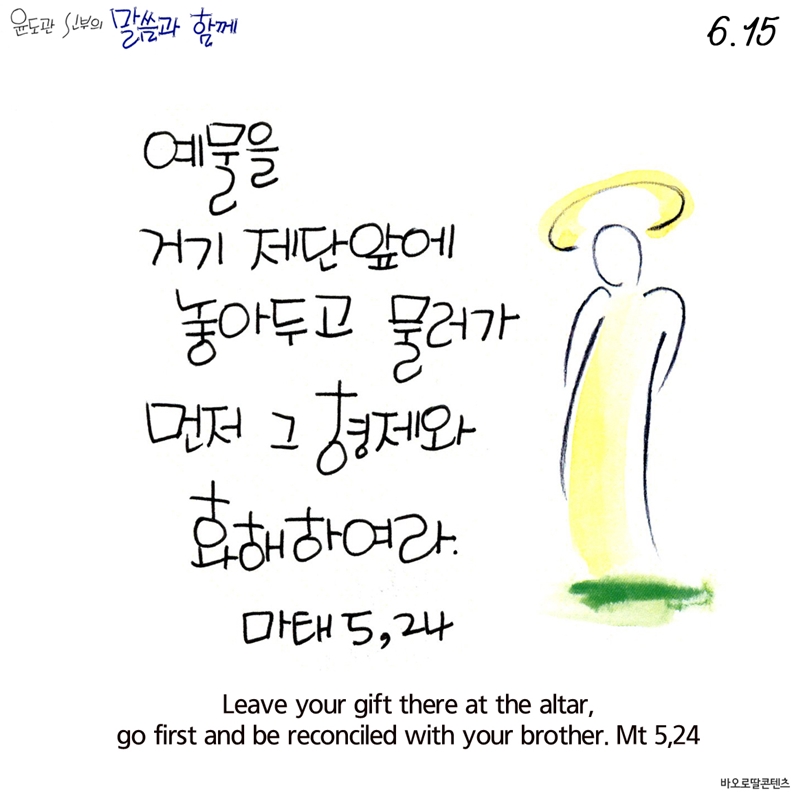 윤도관 신부의 말씀과 함께
6.15
예물을
거기 제단앞에
놓아두고 물러가
먼저 그 형제와
화해하여라.
마태 5,24
Leave your gift there at the altar,
go first and be reconciled with your brother. Mt 5,24
바오로딸콘텐츠